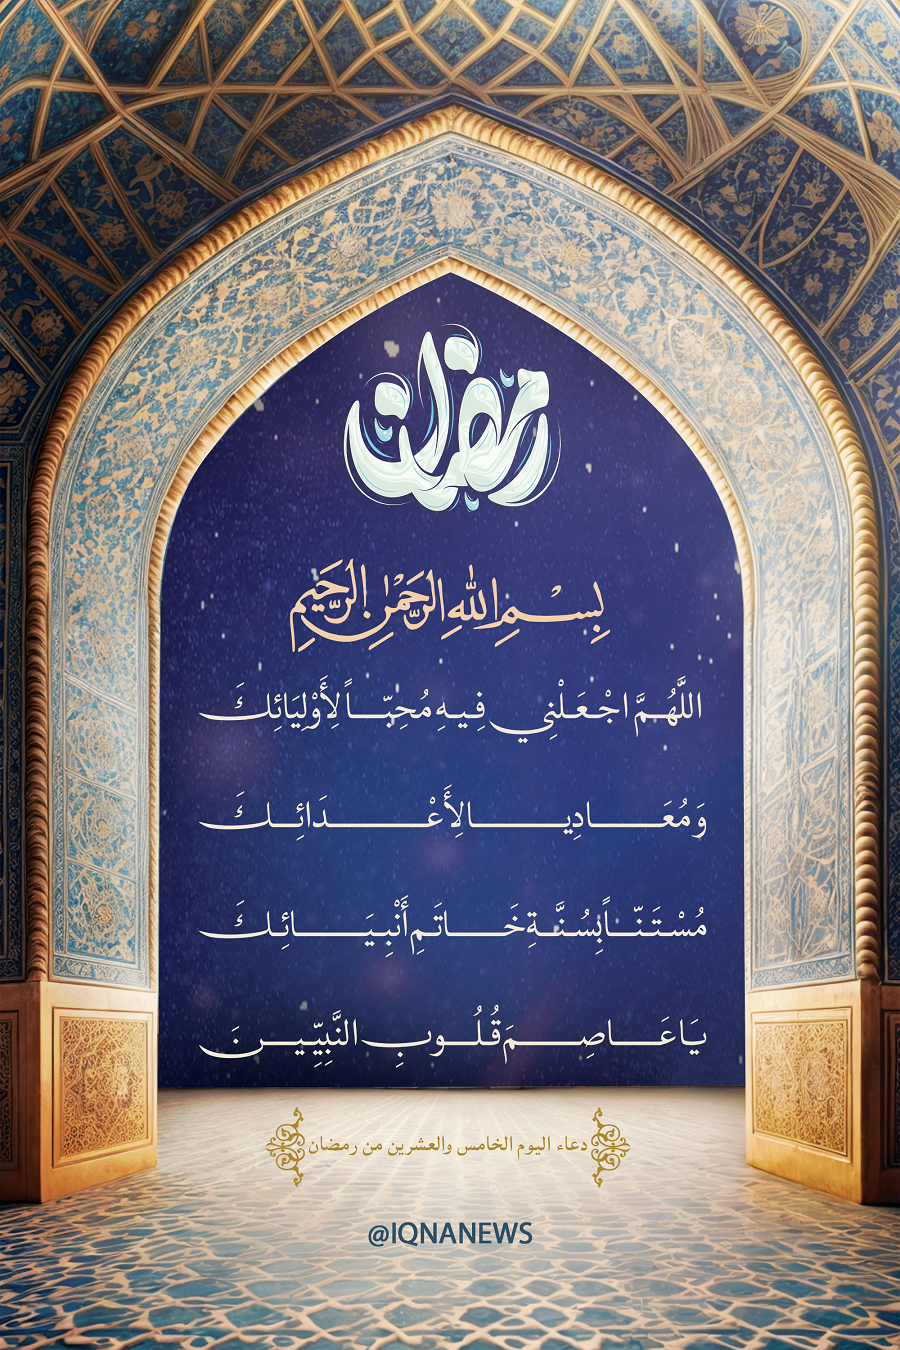 رمضان
بِسْمِ اللهِ الرَّحْمٰنِ الرَّحِيمِ
اللَّهُمَّ اجْعَلْنِي فِيهِ مُحِبّاً لِأَوْلِيَائِكَ
وَمُعَادِيا لِأَعْدَائِكَ
مُسْتَنّاً بِسُنَّةِ خَاتَمِ أَنْبِيَائِكَ
يَا عَاصِمَ قُلُوبِ النَّبِيِّينَ
دعاء اليوم الخامس والعشرين من رمضان
@IQNANEWS